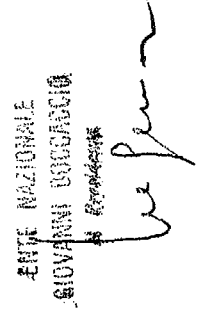 ENTE NAZIONALE
GIOVANNI BOCCACCIO
Il Presidente